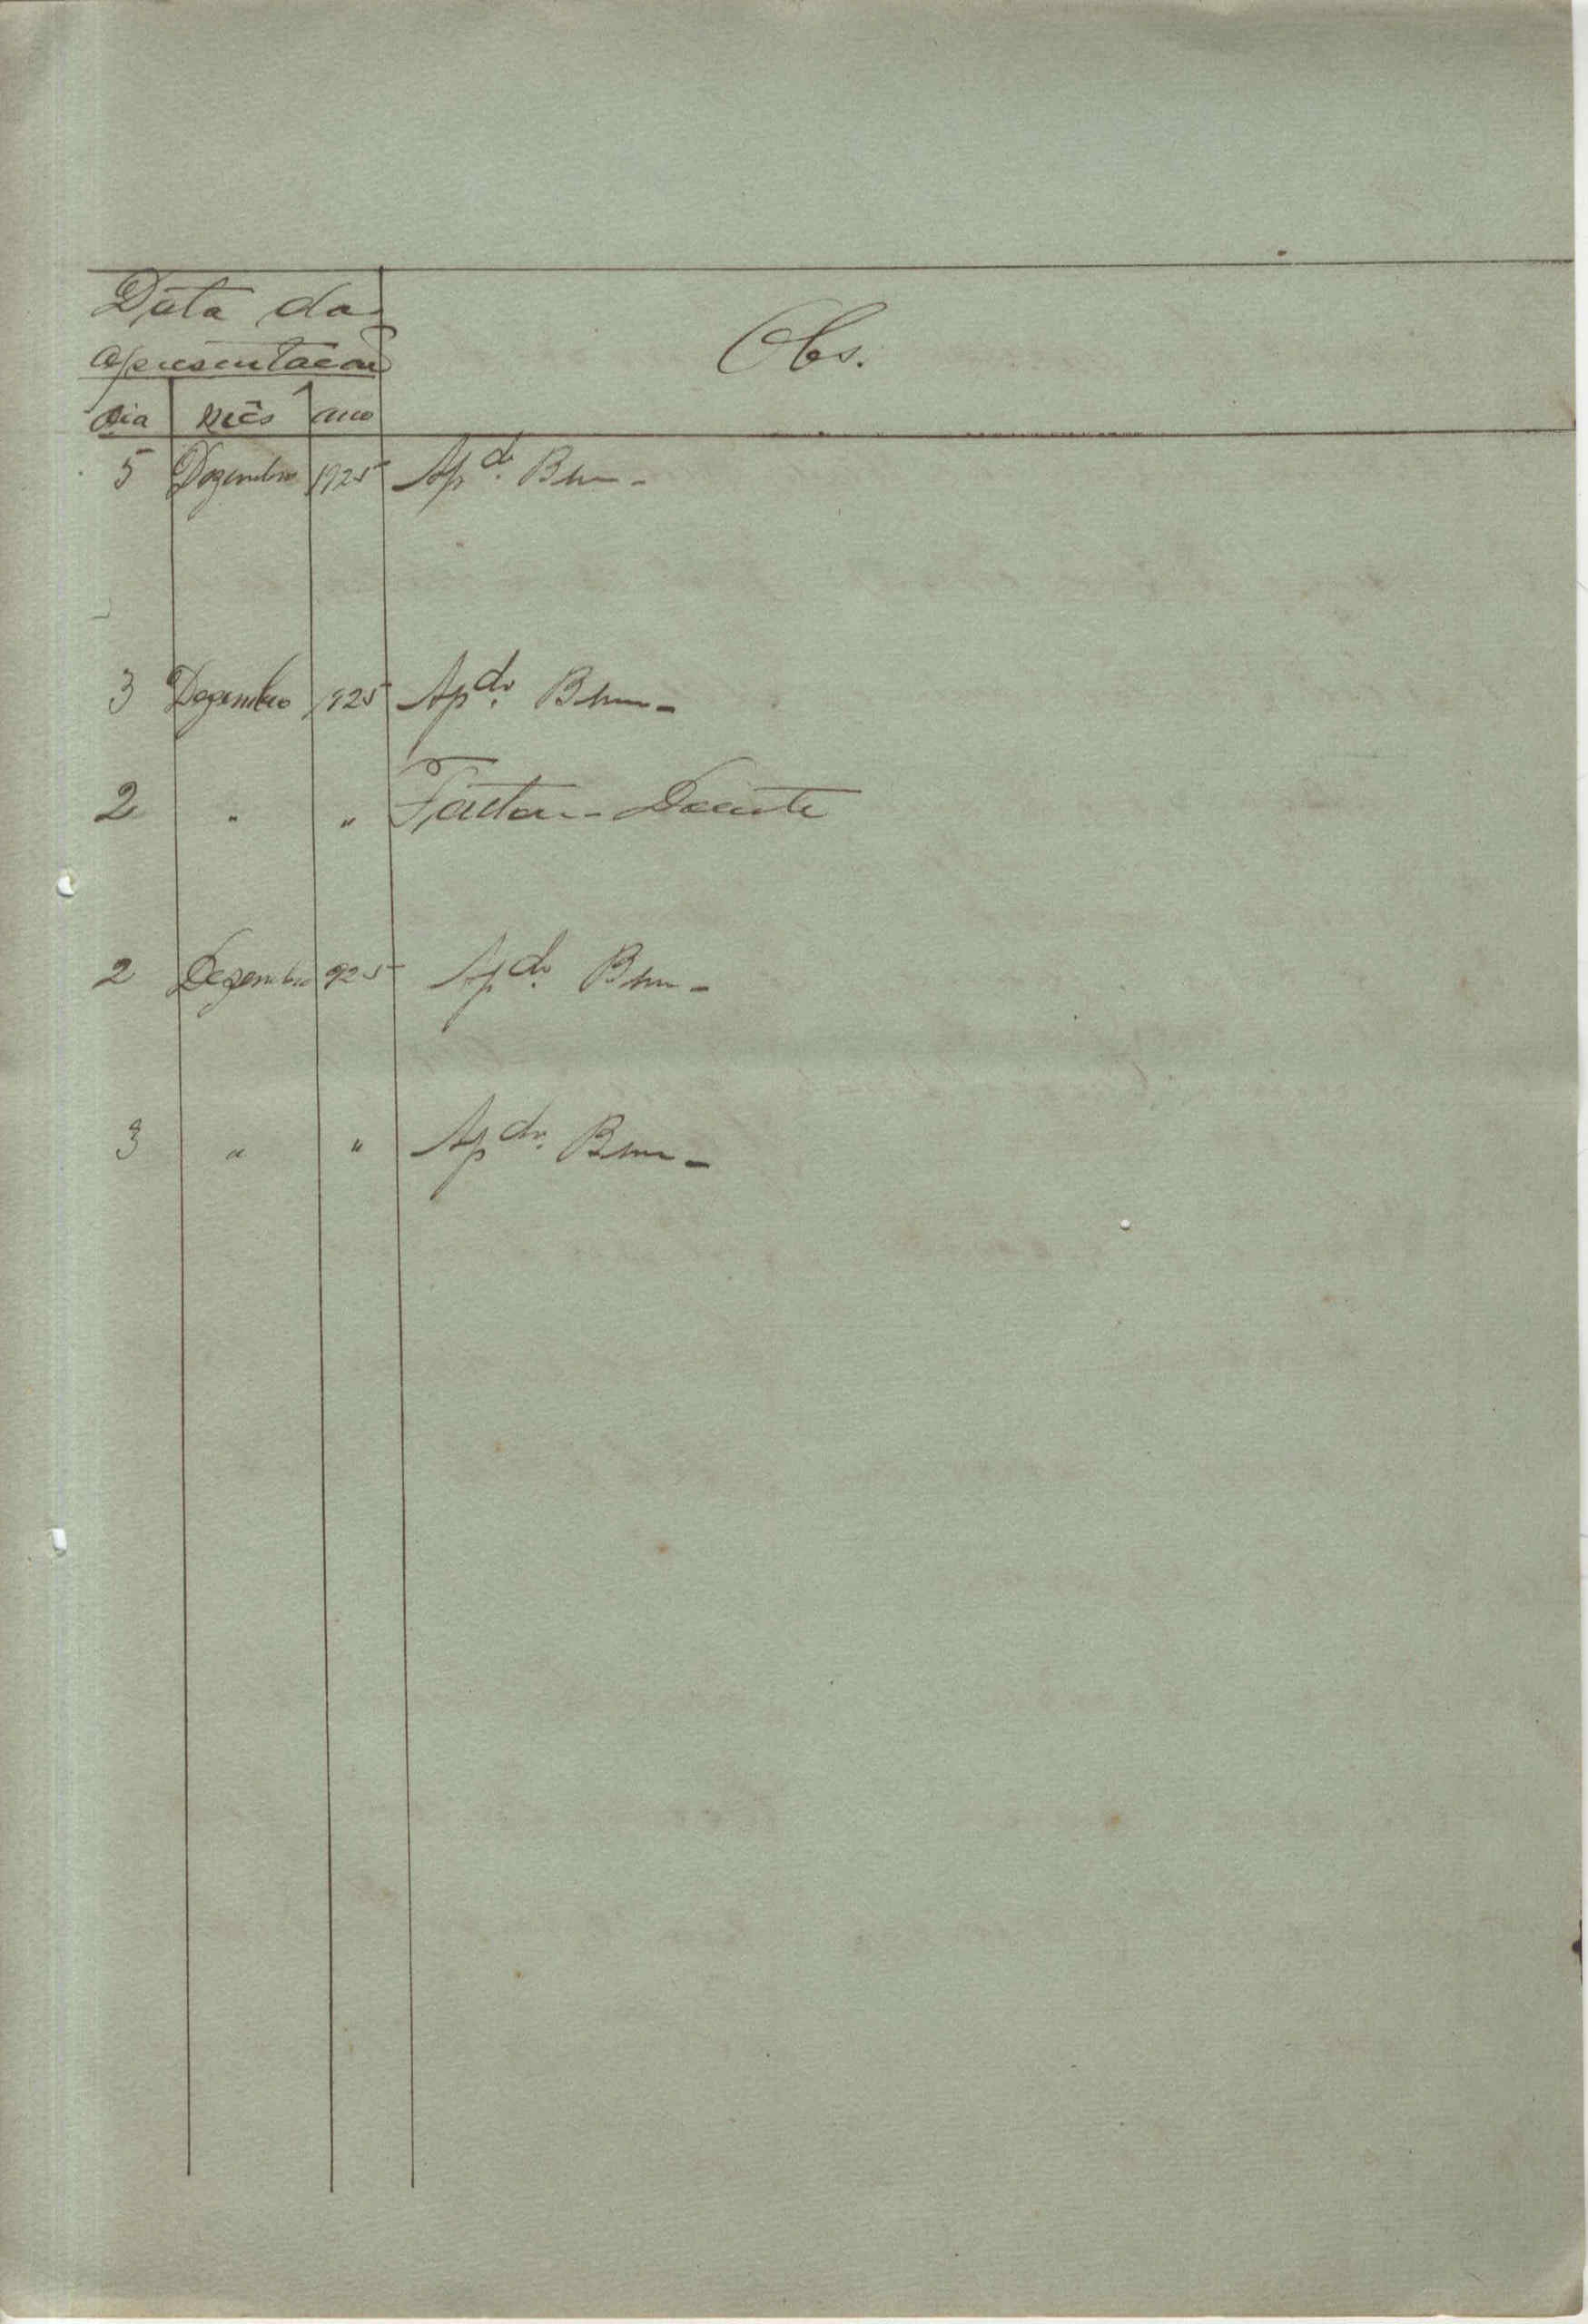 Data da
apresentação
Obs.
dia mês ano
5 Dezembro 1925 Apdo.
3 Dezembro 1925 Apdo.
2 " " Faltou - Doente
2 Dezembro 925 Apdo.
3 " " Apdo.